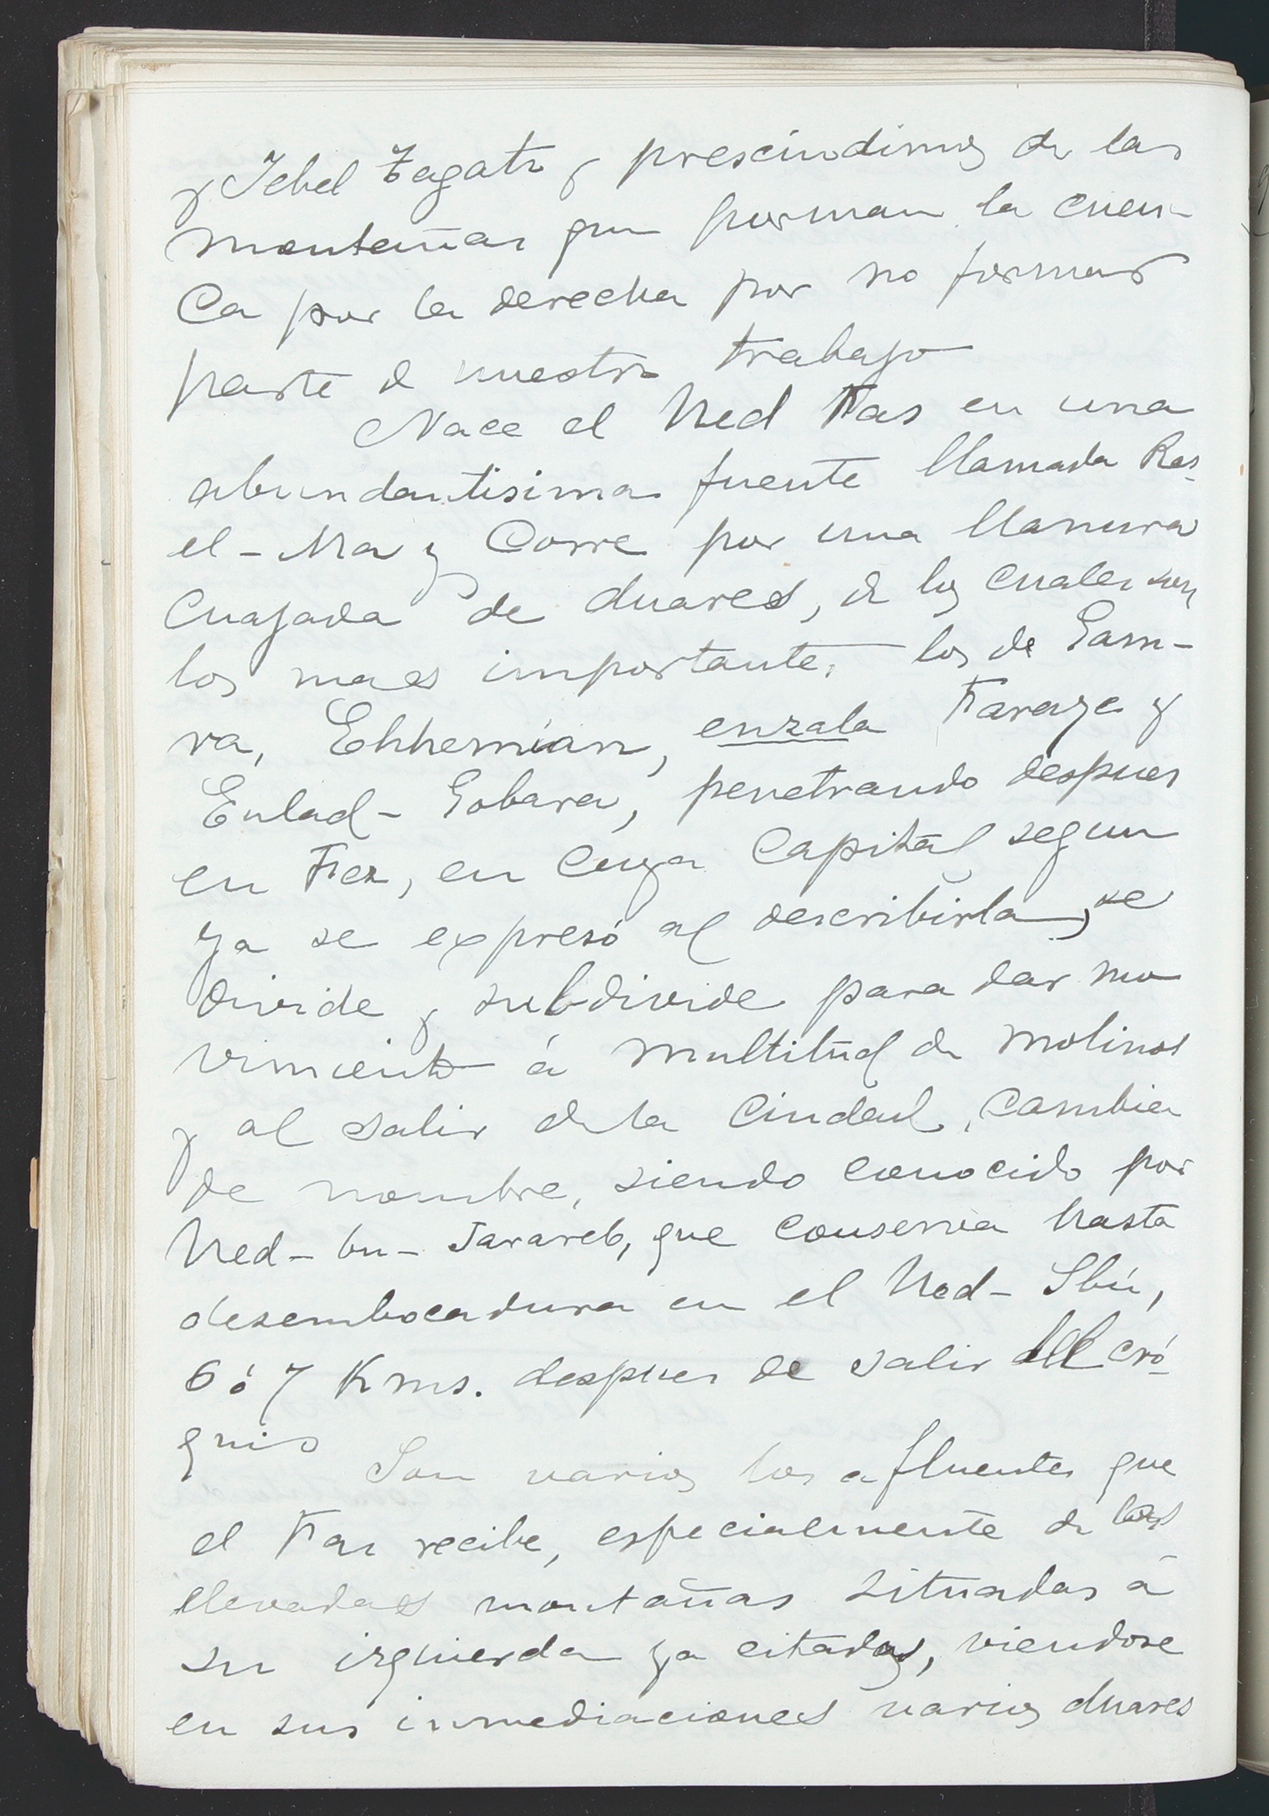 y Jebel Zagatr y prescindimos de las
montañas que forman la cuen-
ca por la derecha por no formar
parte de nuestro trabajo
Nace el Ued Fas en una
abundantisima fuente llamada Ras-
el-Ma y corre por una llanura
cuajada de duares, de los cuales son
los mas importantes los de Gam-
ra, Ehhemian, enzala Faraye y
Eulad-Gobara, penetrando despues
en Fez, en cuya capital segun
ya se expresó al describirla, se
divide y subdivide para dar mo
vimiento á multitud de molinos
y al salir de la ciudad, cambia
de nombre, siendo conocido por
Ued-bu-Jarareb, que conserva hasta
desembocadura en el Ued-Sbú,
6 ó 7 Kms. despues de salir del cró-
quis
Son varios los afluentes que
el Fas recibe, especialmente de las
elevadas montañas situadas á
su izquierda ya citadas, viendose
en sus inmediaciones varios duares